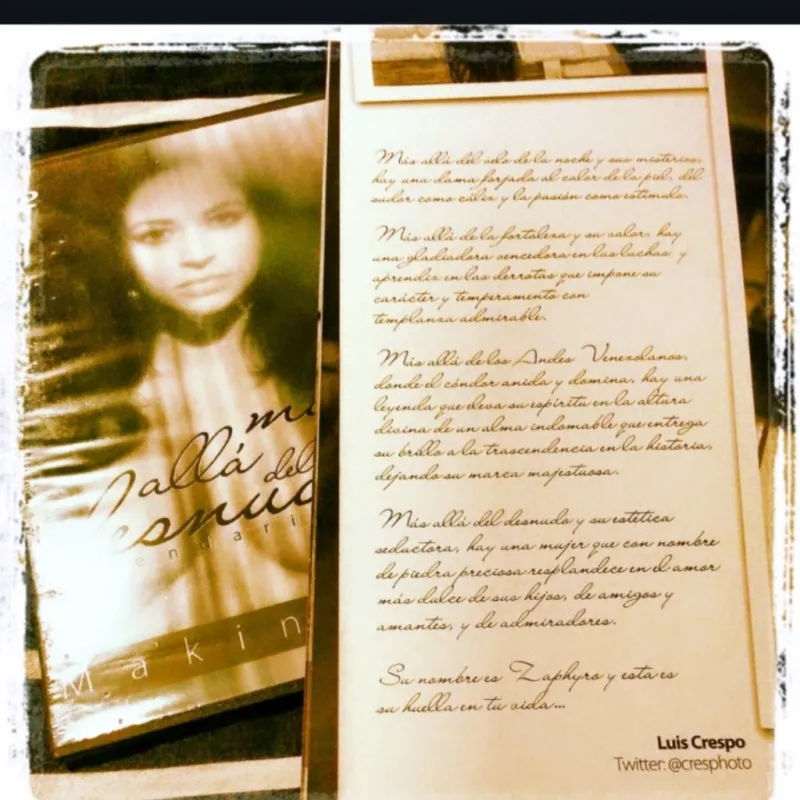 más
allá del
desnudo
Makin
Más allá del velo de la noche y sus misterios,
hay una dama forjada al calor de la piel, del
sudor como cáliz y la pasión como estímulo.
Más allá de la fortaleza y su valor, hay
una gladiadora vencedora en las luchas y
aprendiz en las derrotas que impone su
carácter y temperamento con
templanza admirable.
Más allá de los Andes Venezolanos,
donde el cóndor anida y domina, hay una
leyenda que eleva su espíritu en la altura
divina de un alma indomable que entrega
su brillo a la trascendencia en la historia,
dejando su marca majestuosa.
Más allá del desnudo y su estética
seductora, hay una mujer que con nombre
de piedra preciosa resplandece en el amor
más dulce de sus hijos, de amigos y
amantes, y de admiradores.
Su nombre es Zaphyro y esta es
su huella en tu vida...
Luis Crespo
Twitter: @cresphoto